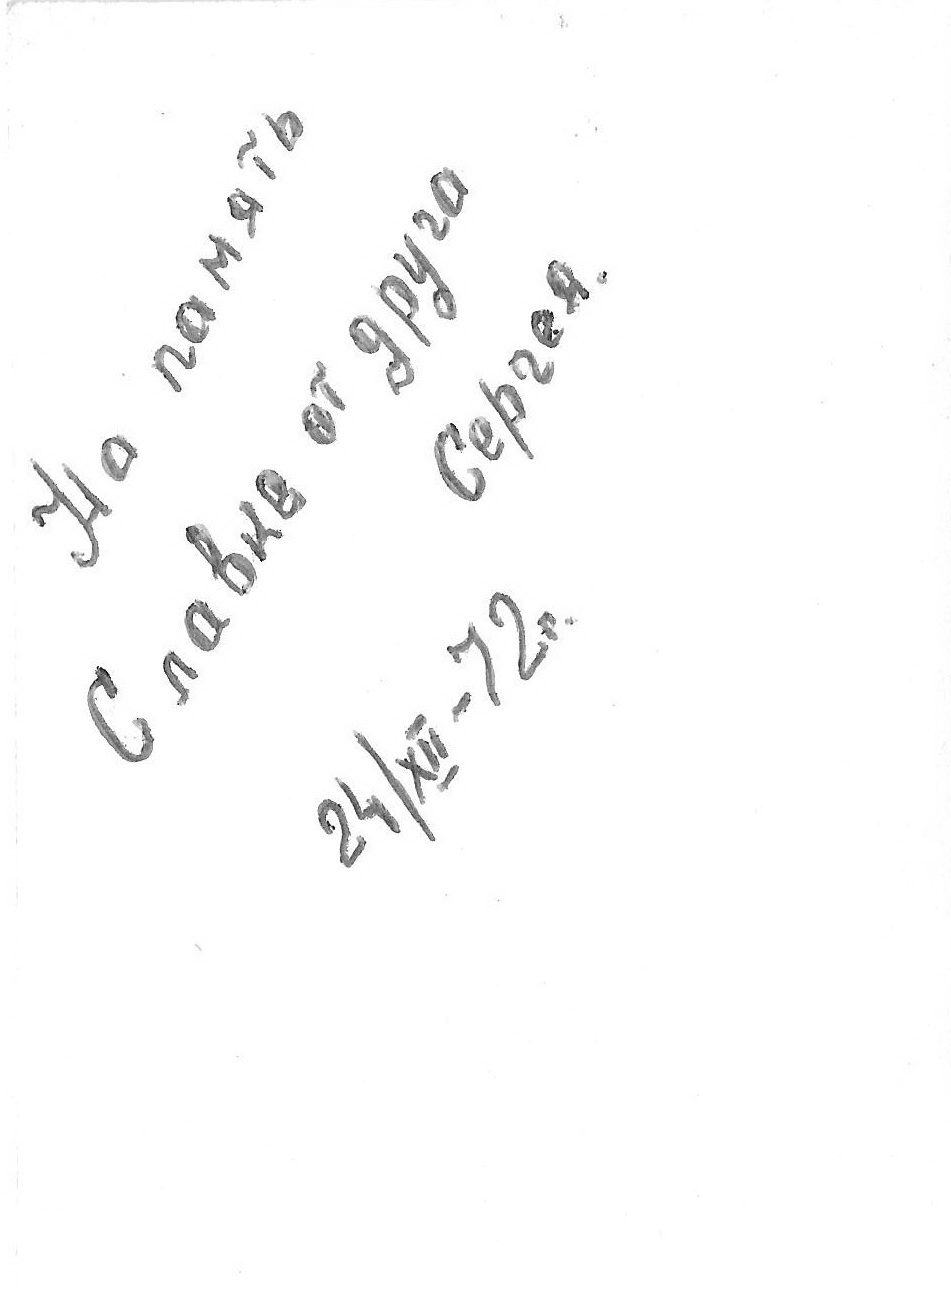 На память
Славке от друга
Сергея.
24/XII-72г.